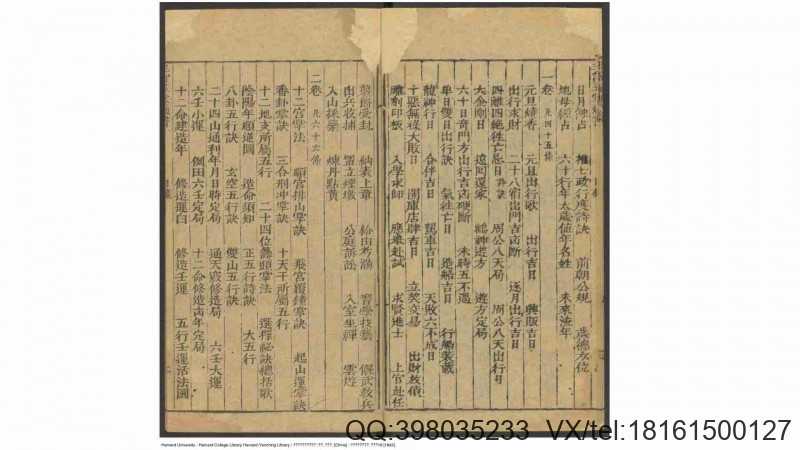 日月□占 推七政行度詩訣 前朝公規 歲德方位
地母經占 六十行年太歲值年名姓 未來流年
一卷 凡四十五條
元旦燒香 元旦出行歌 出行吉日 興販吉日
出行求財 二十八宿出門吉凶断 逐月出行吉日
四離四絕牲亡忌日 周公八天局 周公八天出行日
大金剛日 遠囘還家 鶴神遊方 遊方定局
六十日奇門方出行吉凶断 朱轉五不遇
单日雙日出行訣 氣往亡日 造船吉日 行船裝載
龍神行日 合伴吉日 駕車吉日 天敗六不成日
十惡無祿大敗日 開庫店肆吉日 立契交易 出財放債
雕刻印板 入學求師 應舉赴試 求賢進士 上官赴任
襲爵受封 納表上章 給由考滿 習學技藝 偃武教兵
出兵收捕 置立經壇 公庭訴訟 入室坐禪 雲遊
入山採藥 煉丹點黄
二卷 凡六十六條
十二宮掌法 顛宮排山掌訣 飛宮覆鐘掌訣 起山運掌訣
香卦掌訣 三合刑冲掌訣 十天干所屬五行
十二地支所屬五行 二十四位纂頭掌法 選擇秘訣總括歌
陰陽年順逆圖 造命須知 正五行詩訣 大五行
八卦五行訣 玄空五行訣 雙山五行訣
二十四山通利年月日時定局 通天竅修造局 六壬大運
六壬小運 個田六壬定局 十二命修造南年定局
十二命建造年 修造運白 修造壬運 五行壬運活法圖
QQ:398035233 VX/tel:18161500127
Harvard University - Harvard College Library Harvard-Yenching Library / ?????????? ?? ???. [China] : ???????? ????4 [1842]